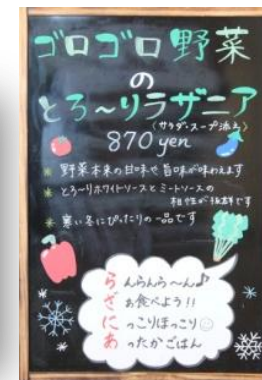 ゴロゴロ野菜
の
とろ〜りラザニア
(サラダ・スープ添え)
870yen
* 野菜本来の甘味や旨味が味わえます
* とろ〜りホワイトソースとミートソースの
相性が抜群です
* 寒い冬にぴったりの一品です
らんらんら〜ん♪
ざお食べよう!!
にっこりほっこり☺
あったかごはん